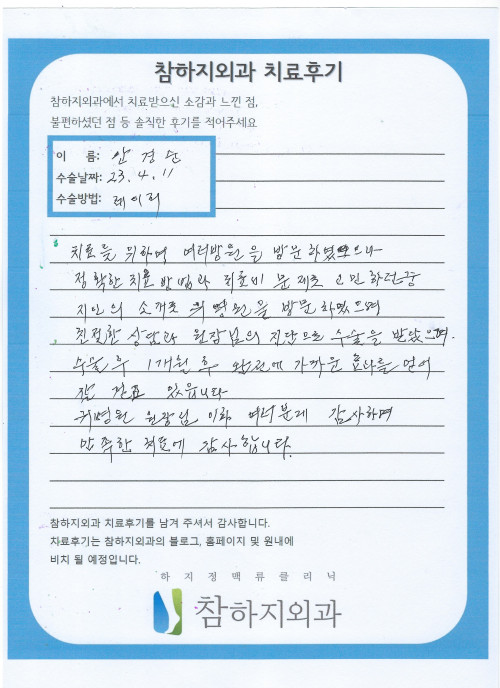 참하지외과 치료후기
참하지외과에서 치료받으신 소감과 느낀 점,
불편하셨던 점 등 솔직한 후기를 적어주세요
이 름: 안경순
수술날짜: 23.4.11
수술방법: 레이저
치료를 위하여 여러방원을 방문하였으나
정확한 치료 방법과 치료비 문제로 고민하던중
지인의 소개로 귀병원을 방문하였으며
친절한 상담과 원장님의 진단으로 수술을 받았으며.
수술 후 1개월 후 완전에 가까운 효과를 얻어
잘 있읍니다
귀병원 원장님 이하 여러분께 감사하며
만족한 치료에 감사합니다.
참하지외과 치료후기를 남겨 주셔서 감사합니다.
차료후기는 참하지외과의 블로그, 홈페이지 및 원내에
비치 될 예정입니다.
하지정맥류클리닉
참하지외과